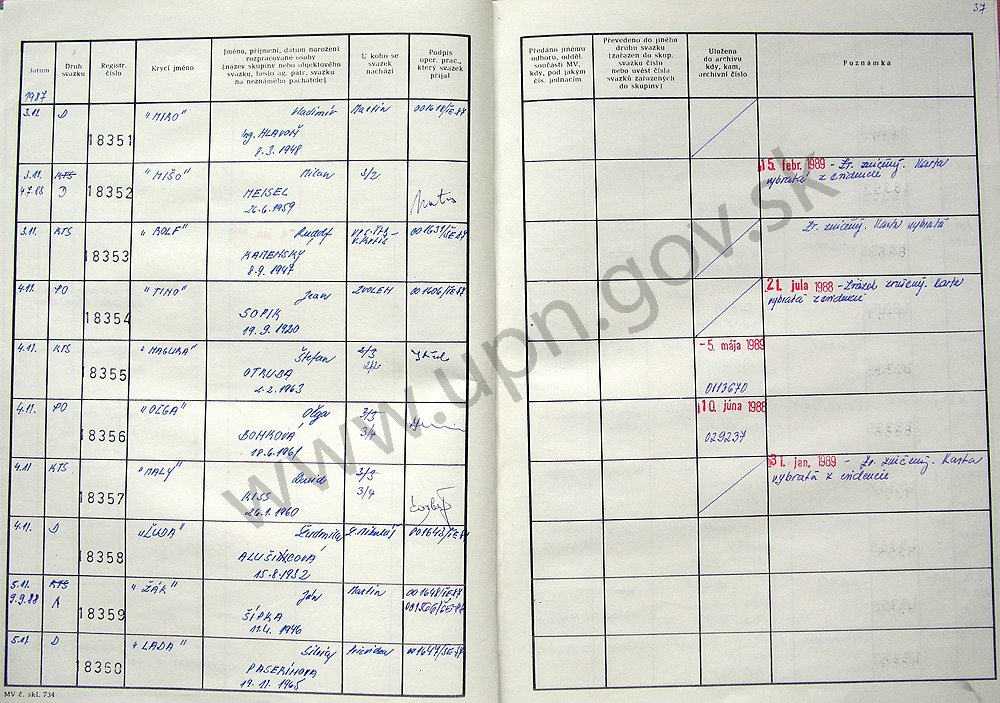 37
Datum
Druh
svazku
Registr.
číslo
Krycí jméno
Jméno, příjmení, datum narození
rozpracované osoby
[název skupiny nebo objektového
svazku, heslo ag. pátr. svazku
na neznámého pachatele]
U koho se
svazek
nachází
Podpis
oper. prac.,
který svazek
přijal
Předáno jinému
odboru, odděl.
součásti MV,
kdy, pod jakým
čís. jednacím
Převedeno do jiného
druhu svazku
[zařazen do skup.
svazku číslo
nebo uvést čísla
svazků zařazených
do skupiny]
Uloženo
do archivu
kdy, kam,
archivní číslo
Poznámka
1987
3.11. D 18351 "MIRO" Vladimír Martin
Ing. HLAVOŇ
8.3.1948
3.11. KTS 18352 "MIŠO" Milan 3/2
4.7.88 D MEISEL
26.6.1959
15. febr. 1989 - Zv. zničený. Karta
vybratá z evidencie
3.11. KTS 18353 "ROLF" Rudolf
KAMENSKY
8.9.1947
Zv. zničený. Karta vybratá
4.11. PO 18354 "TINO" Jean ZVOLEN 001606/ŠE-87
SOPIK
19.9.1920
21. júla 1988 - Zväzok zničený. Karta
vybratá z evidencie
4.11. KTS 18355 "MAGURA" Štefan 2/3
OTRUBA
2.2.1963
- 5. mája 1989
0113670
4.11. PO 18356 "OĽGA" Oľga 3/3
BOHKOVÁ 3/4
18.6.1961
10. júna 1988
029237
4.11 KTS 18357 "MALY" David
KISS 3/4
26.1.1960
31. jan. 1989 - Zv. zničený. Karta
vybratá z evidencie
4.11. D 18358 "ĽUDA" Ľudmila L. Mikuláš
15.8.1932
5.11. KTS 18359 "ŽÁK" Ján Martin 001648/ŠE-87
9.9.88 A ŠÍPKA
11.4.1946
5.11 D 18360 "LADA" Silvia Prievidza 001647/ŠE-87
PASERINOVA
19.11.1965
MV č. skl. 734
www.upn.gov.sk